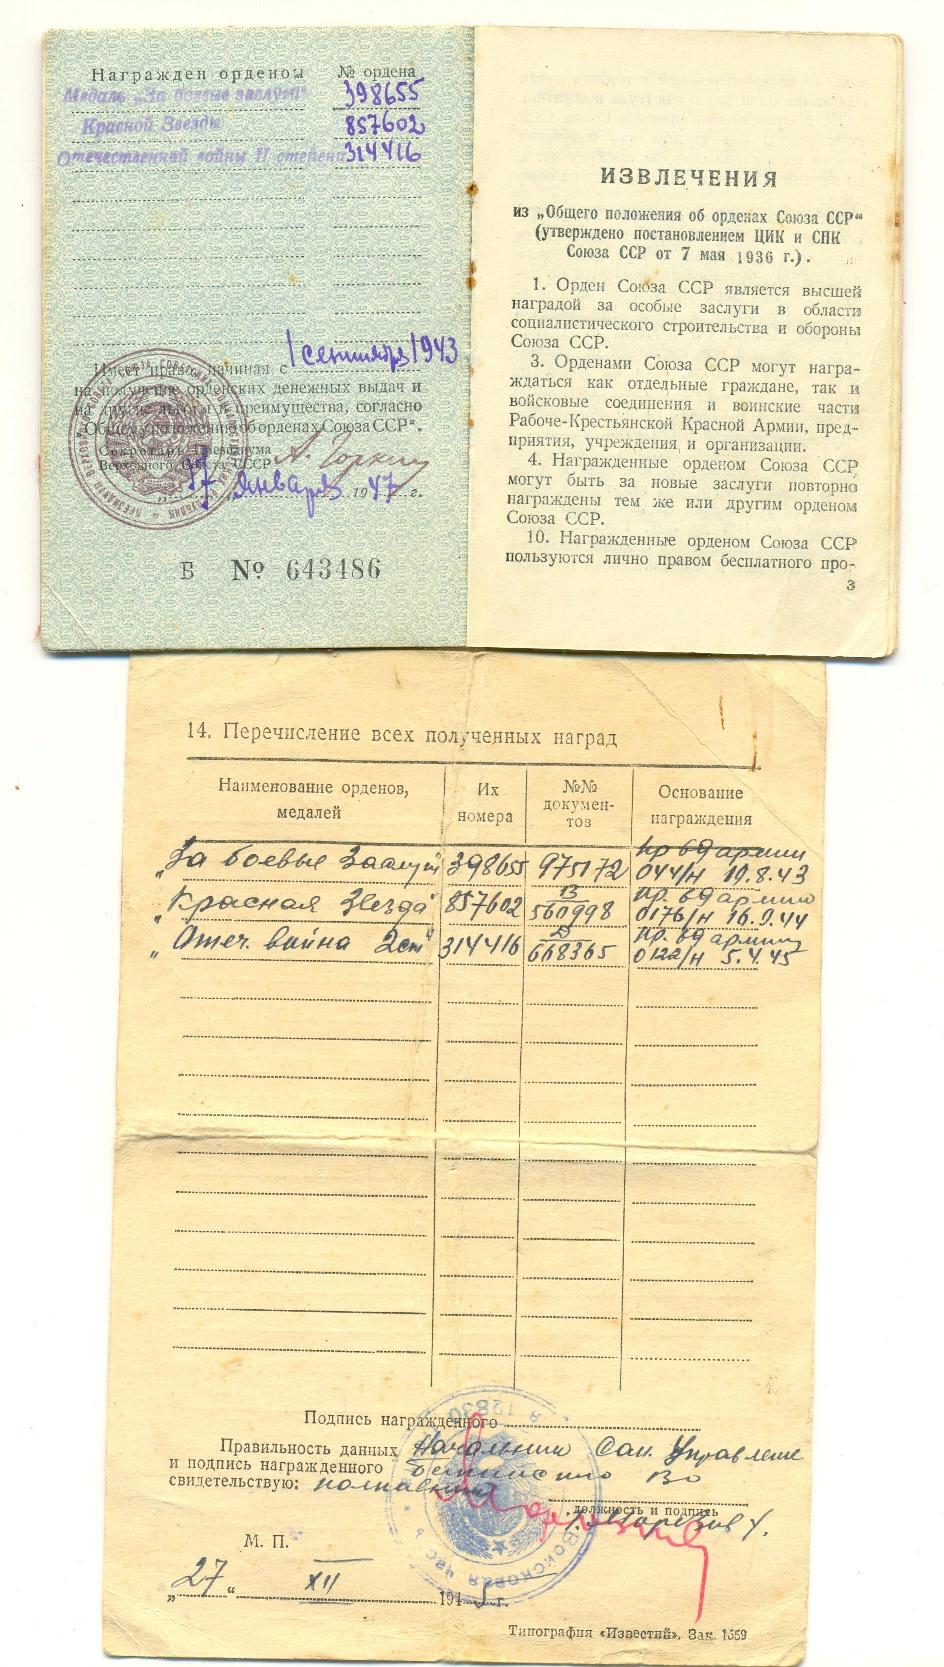 Награжден орденом
№ ордена
Медаль „За боевые заслуги"
398655
Красной Звезды
857602
Отечественной войны II степени
314416
Имеет право начиная с 1 сентября 1943
на получение орденских денежных выдач и
на другие льготы и преимущества, согласно
„Общему положению об орденах Союза ССР".
Секретарь Президиума
Верховного Совета СССР А. Горкин
„17" января 1947 г.
Б № 643486
ИЗВЛЕЧЕНИЯ
из „Общего положения об орденах Союза ССР"
(утверждено постановлением ЦИК и СНК
Союза ССР от 7 мая 1936 г.).
1. Орден Союза ССР является высшей
наградой за особые заслуги в области
социалистического строительства и обороны
Союза ССР.
3. Орденами Союза ССР могут награ-
ждаться как отдельные граждане, так и
войсковые соединения и воинские части
Рабоче-Крестьянской Красной Армии, пред-
приятия, учреждения и организации.
4. Награжденные орденом Союза ССР
могут быть за новые заслуги повторно
награждены тем же или другим орденом
Союза ССР.
10. Награжденные орденом Союза ССР
пользуются лично правом бесплатного про-
3
14. Перечисление всех полученных наград
Наименование орденов,
медалей
Их
номера
№№
докумен-
тов
Основание
награждения
„За боевые заслуги" 398655 975172 Пр 69 армии
044/н 19.8.43
„Красная Звезда" 857602 В 560998 Пр. 69 армию
0176/н 16.9.44
„Отеч. война 2 ст" 314416 Д 668365 Пр. 69 армии
0122/н 5.4.45
Подпись награжденного
Правильность данных Начальник Сан. Управление
и подпись награжденного
свидетельствую: полковник
должность и подпись
М. П.
„27" XII 1945 г.
Войсковая час
Типография «Известий». Зак. 1559